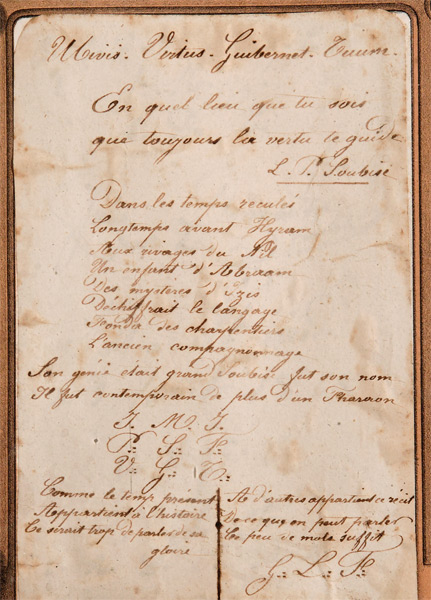 Ubivis. Virtus. Guibernet. Tuum.
En quel lieu que tu sois
que toujours la vertu te guide
L. P. Soubise
Dans les temps reculés
Longtemps avant Hyram
Aux rivages du Nil
Un enfant d'Abraam
Des mystères d'Izis
Déchiffrait le langage
Fonda des charpentiers
L'ancien compagnonnage
Son génie était grand Soubise fut son nom
Il fut contemporain de plus d'un Pharaon
J. M. J.
P∴ S∴ F∴
V∴ G∴ T∴
Comme le temp présent
Appartient à l'histoire
Ce serait trop de parler de sa
gloire
A d'autres appartient ce récit
De ce qu'on peut parler
Ce peu de mots suffit
G∴ L∴ F∴